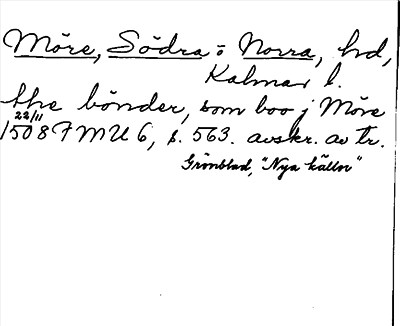 Möre, Södra o Norra, hd,
Kalmar l.
the bönder, som boo j Möre
22/11
1508 FMU 6, s. 563. avskr. av tr.
Grönblad, "Nya källor"